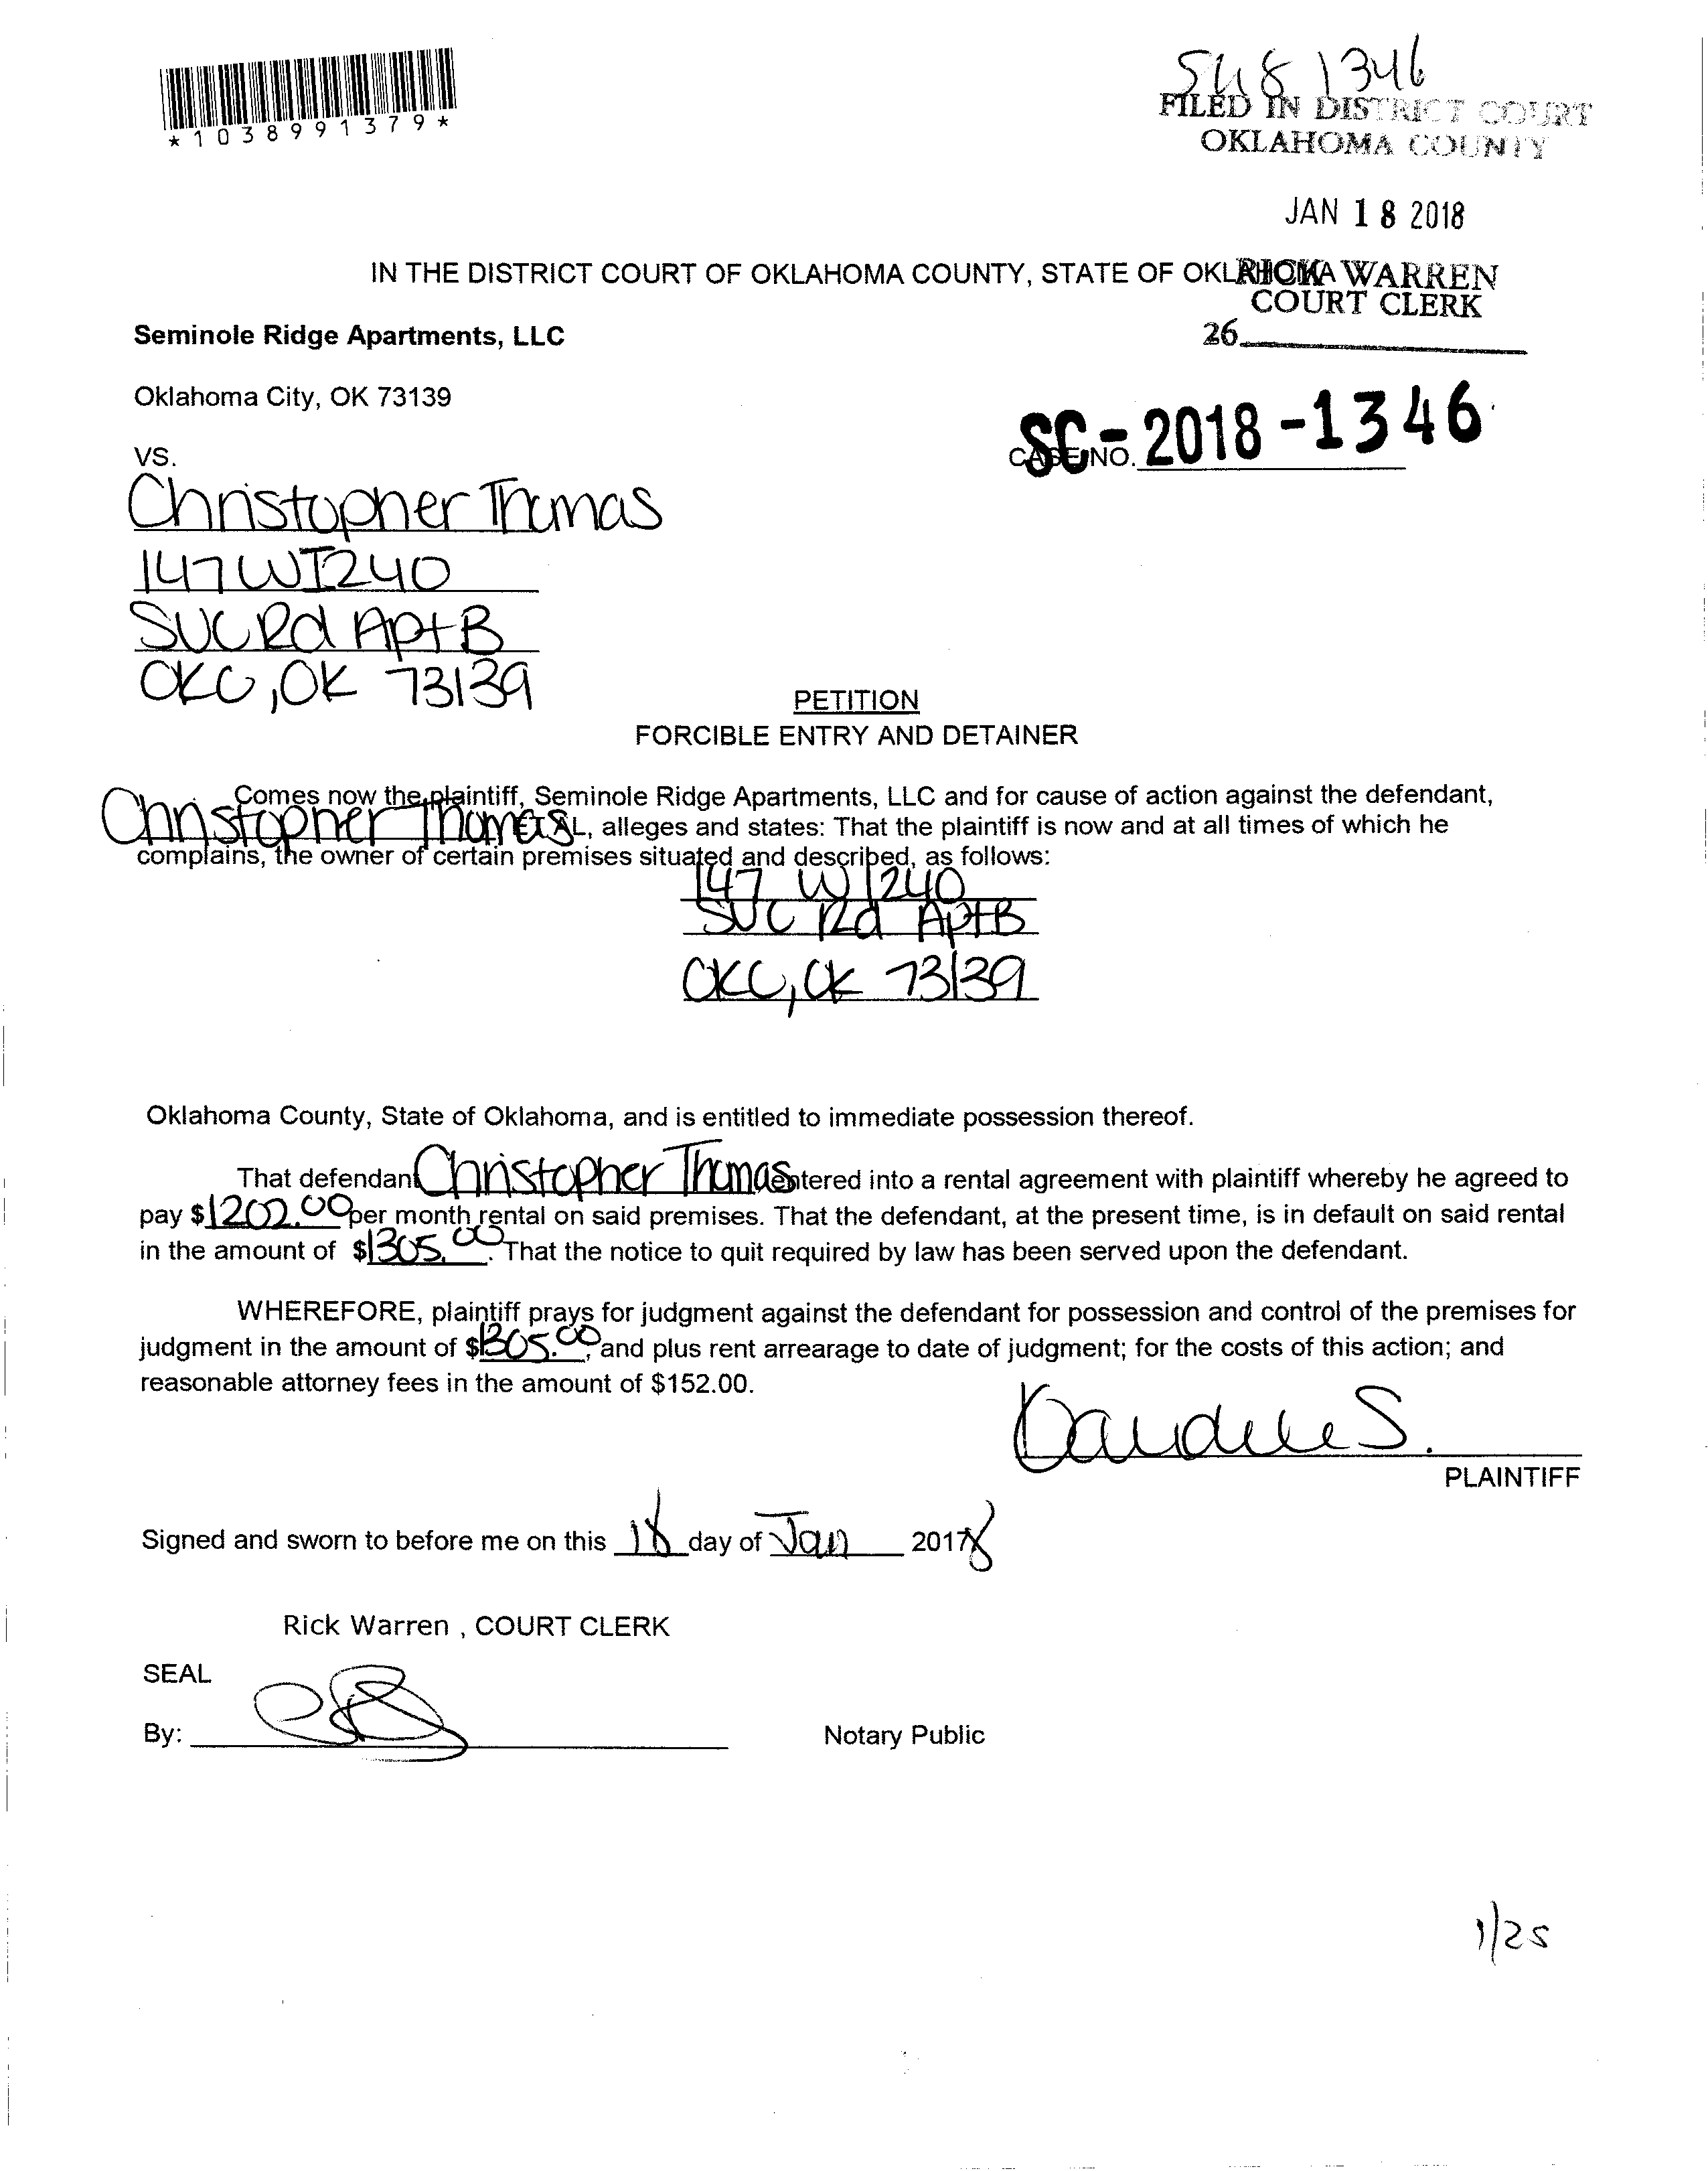 *1038991379*
SC18 1346
FILED IN DISTRICT COURT
OKLAHOMA COUNTY
JAN 18 2018
IN THE DISTRICT COURT OF OKLAHOMA COUNTY, STATE OF OKLAHOMA
RICK WARREN
COURT CLERK
26
Seminole Ridge Apartments, LLC
Oklahoma City, OK 73139
VS.
CASE NO. SC-2018-1346
Christopher Thomas
147 W I240
SVC Rd Apt B
OKC, OK 73139
PETITION
FORCIBLE ENTRY AND DETAINER
Comes now the plaintiff, Seminole Ridge Apartments, LLC and for cause of action against the defendant,
Christopher Thomas ET AL, alleges and states: That the plaintiff is now and at all times of which he
complains, the owner of certain premises situated and described, as follows:
147 W I240
SVC Rd Apt B
OKC, OK 73139
Oklahoma County, State of Oklahoma, and is entitled to immediate possession thereof.
That defendant Christopher Thomas entered into a rental agreement with plaintiff whereby he agreed to
pay $1202.00 per month rental on said premises. That the defendant, at the present time, is in default on said rental
in the amount of $1305.00. That the notice to quit required by law has been served upon the defendant.
WHEREFORE, plaintiff prays for judgment against the defendant for possession and control of the premises for
judgment in the amount of $1305.00, and plus rent arrearage to date of judgment; for the costs of this action; and
reasonable attorney fees in the amount of $152.00.
S.
PLAINTIFF
Signed and sworn to before me on this 18 day of Jan 2018
Rick Warren , COURT CLERK
SEAL
By:
Notary Public
1/25